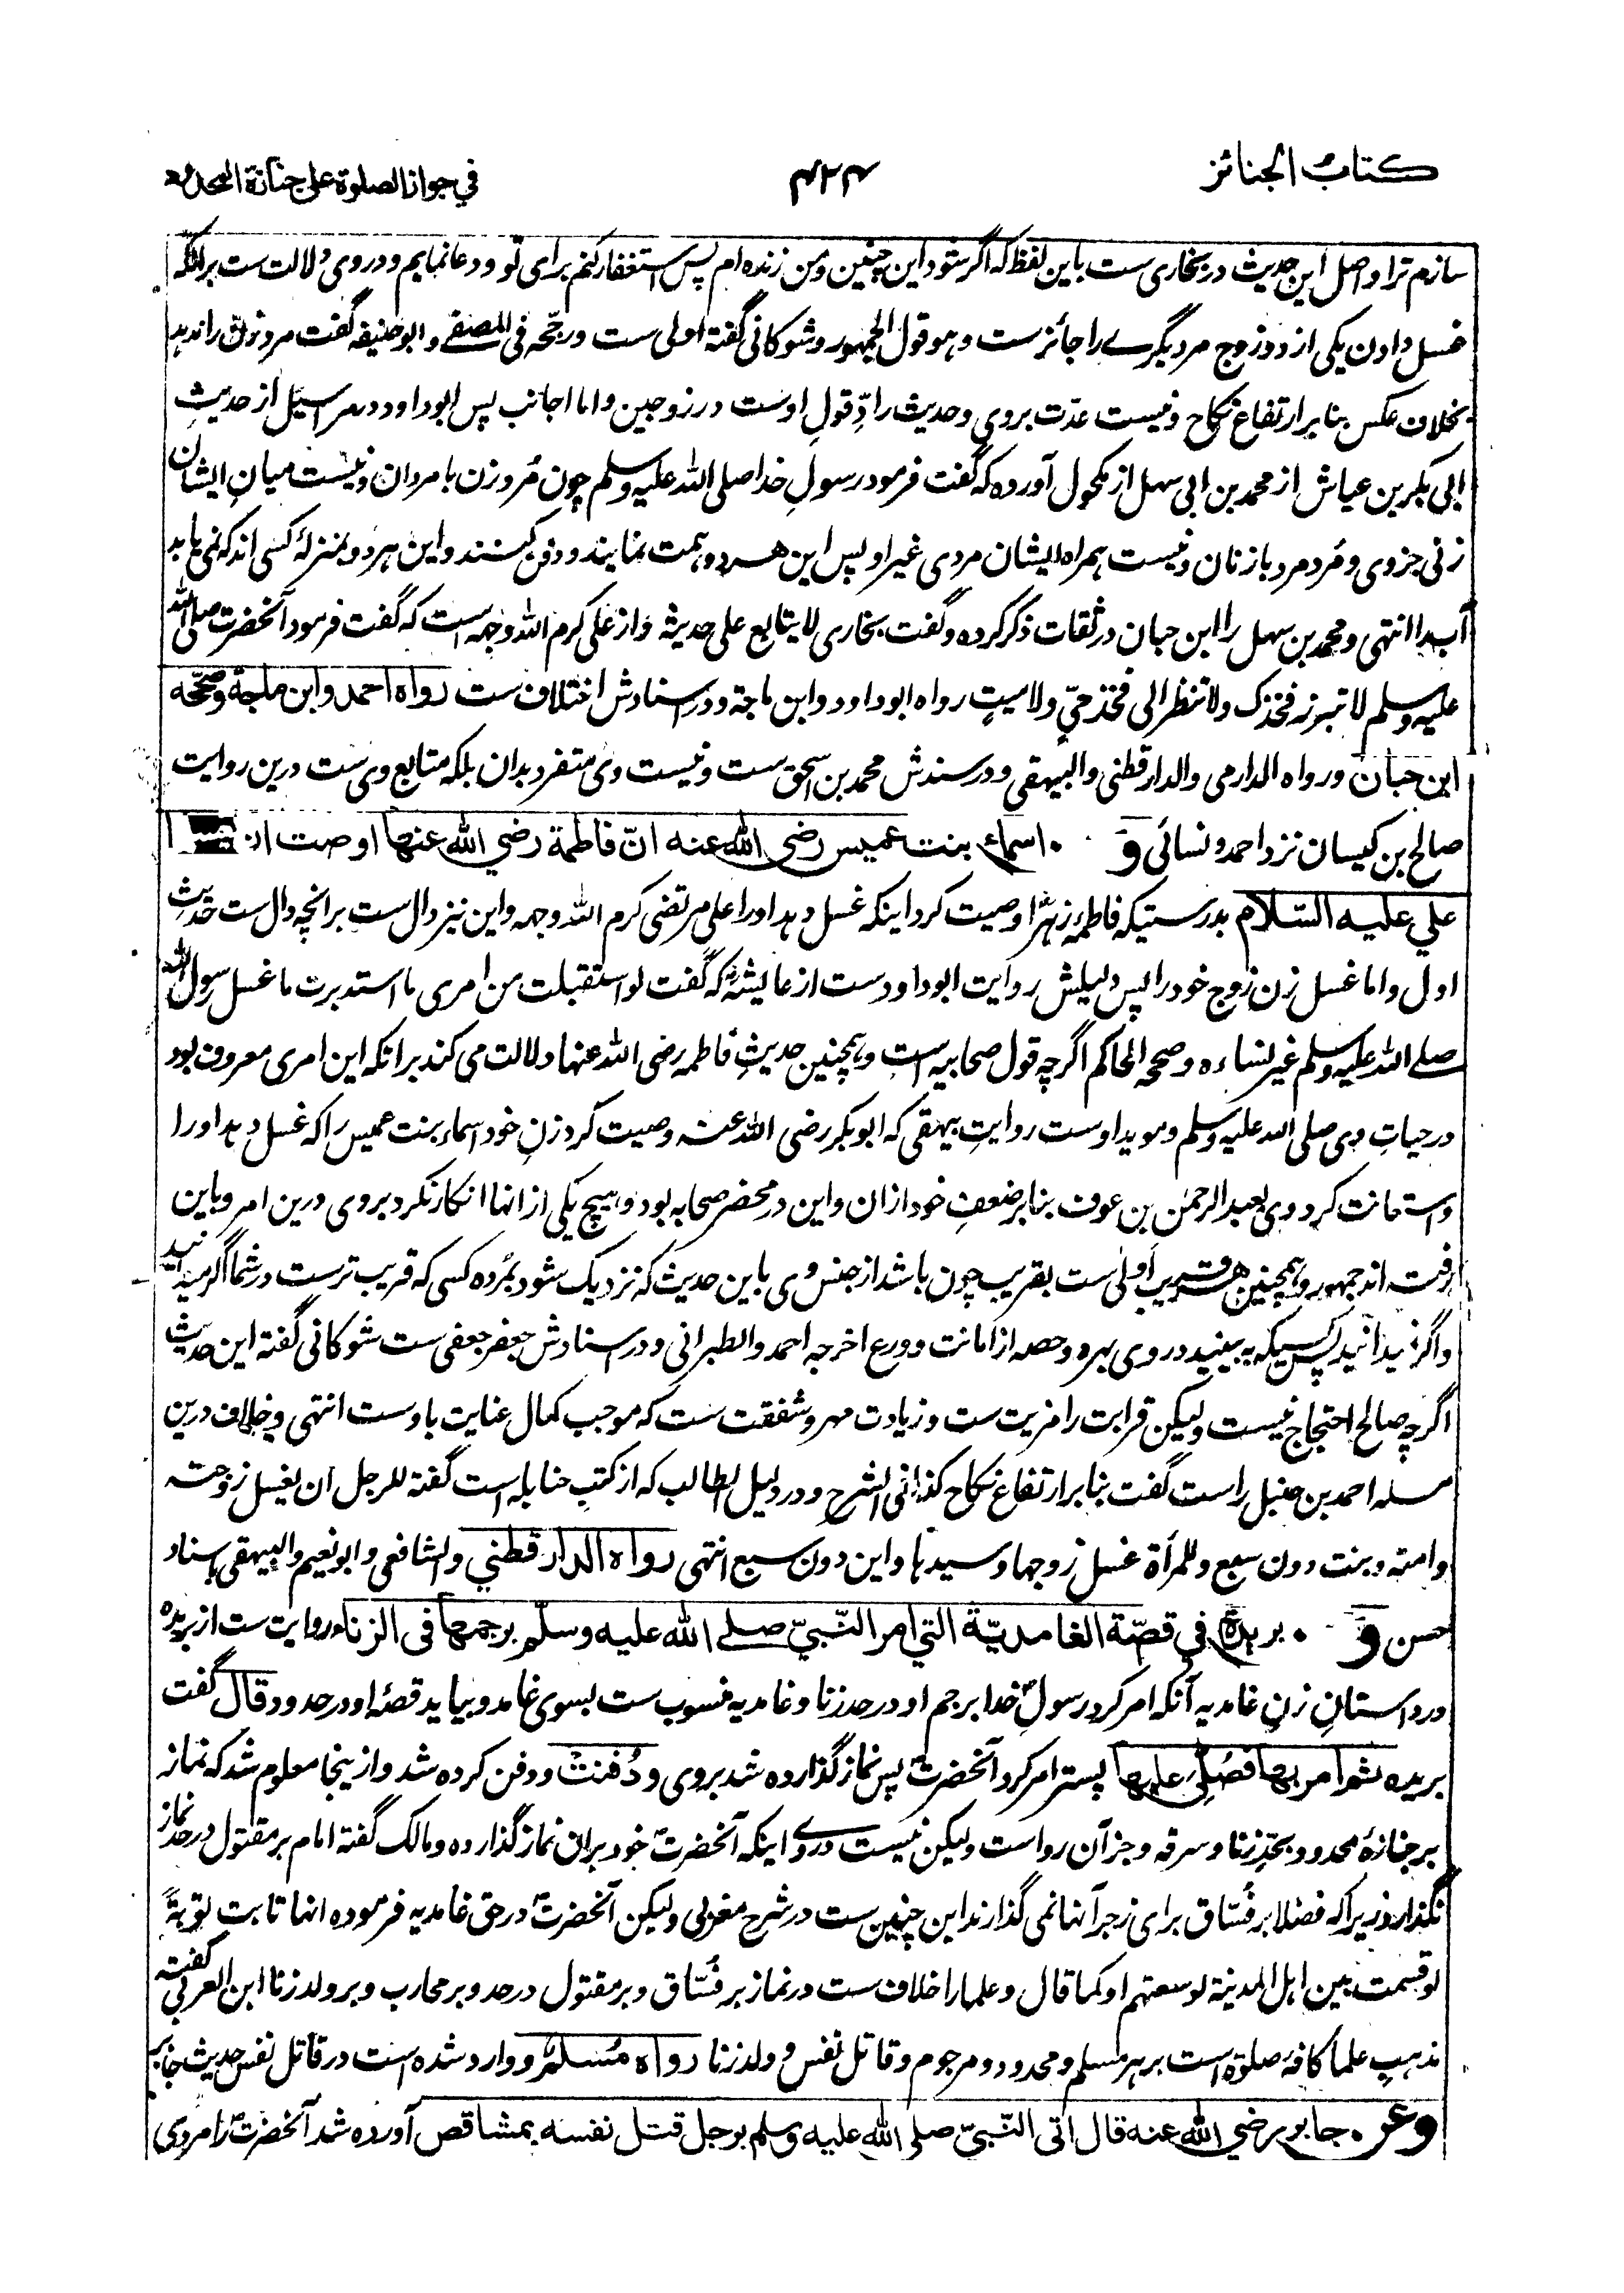 كتاب الجنائز
۴۲۴
في جواز الصلوة على جنازة المحدود
سازم ترا و اصل این حدیث در بخاری ست باین لفظ که اگر شود این چنین و من زنده ام پس استغفار کنم برای تو و دعا نمایم و در وی دلالت ست برآنکه
غسل دادن یکی از دو زوج مر دیگرے را جائز ست و هو قول الجمهور و شوکانی گفته اولی ست ورجحه فی المصفے و ابو حنیفه گفت مرد زن را ندهد
بخلاف عکس بنا بر ارتفاع نکاح و نیست عدت بروی و حدیث رادّ قولِ اوست در زوجین و اما اجانب پس ابو داود در مراسیل از حدیثِ
ابی بکر بن عیاش از محمد بن ابی سهل از مکحول آورده که گفت فرمود رسولِ خدا صلی الله علیه وسلم چون مُرد زن با مردان و نیست میانِ ایشان
زنی جز وی و مُرد مرد با زنان و نیست همراه ایشان مردی غیر او پس این هردو تیمم نمایند و دفن کنند و این هردو بمنزلهٔ کسی اند که نمی یابد
آب را انتهی و محمد بن سهل را ابن حبان در ثقات ذکر کرده و گفت بخاری لا یتابع علی حدیثه و از علی کرم الله وجهه است که گفت فرمود آنحضرت صلی الله
علیه وسلم لا تبرز فخذک ولا تنظر الی فخذ حیّ ولا میتٍ رواه ابو داود و ابن ماجة و در اسنادش اختلاف ست رواه احمد وابن ماجة وصححه
ابن حبان ورواه الدارمی والدارقطنی والبیهقی و در سندش محمد بن اسحٰق ست و نیست وی متفرد بدان بلکه متابع وی ست درین روایت
صالح بن کیسان نزد احمد و نسائی وَ اسماء بنت عمیس رضي الله عنه انّ فاطمة رضي الله عنها اوصت ان
علي عليه السّلام بدرستیکه فاطمه زهرا وصیت کرد اینکه غسل دهد او را علی مرتضی کرم الله وجهه و این نیز دال ست برانچه دال ست حدیثِ
اول و اما غسل زن زوج خود را پس دلیلش روایت ابو داود ست از عایشه که گفت لو استقبلت من امری ما استدبرت ما غسل رسول الله
صلے الله علیه وسلم غیر نساءه وصححه الحاکم اگرچه قول صحابیه است و همچنین حدیثِ فاطمه رضی الله عنها دلالت می کند برانکه این امری معروف بود
در حیاتِ وی صلی الله علیه وسلم و موید اوست روایتِ بیهقی که ابو بکر رضی الله عنه وصیت کرد زنِ خود اسماء بنت عمیس را که غسل دهد او را
و استعانت کرد وی بعبد الرحمٰن بن عوف بنا بر ضعفِ خود ازان و این در محضر صحابه بود و هیچ یکی از انها انکار نکرد بروی درین امر و باین
رفته اند جمهور و همچنین هر قریب اَولی ست بقریب چون باشد از جنس وی باین حدیث که نزدیک شود بمُرده کسی که قریب ترست در شما اگر میدانید
و اگر نمیدانید پس کسیکه به بینید در وی بهره و حصه از امانت و ورع اخرجه احمد والطبرانی و در اسنادش جعفر جعفی ست شوکانی گفته این حدیث
اگرچه صالح احتجاج نیست ولیکن قرابت را مزیت ست و زیادت مهر و شفقت ست که موجب کمال عنایت باوست انتهی و خلاف درین
مسله احمد بن حنبل راست گفت بنا بر ارتفاع نکاح کذا فی الشرح و در دلیل الطالب که از کتبِ حنابله است گفته للرجل ان یغسل زوجته
وامته و بنت دون سبع وللمرأة غسل زوجها وسیدها وابن دون سبع انتهی رواه الدارقطني والشافعی وابو نعیم والبیهقی باسناد
حسن وَ بريدة في قصّة الغامديّة التي امر النّبيّ صلے الله عليه وسلّم برجمها فی الزناء روایت ست از بریده
در داستانِ زنِ غامدیه آنکه امر کرد رسولِ خدا برجم او در حد زنا و غامدیه منسوب ست بسوی غامد و بیاید قصهٔ او در حدود قال گفت
بریده ثم امر بها فصُلّي عليها پستر امر کرد آنحضرت پس نماز گذارده شد بروی و دُفنت و دفن کرده شد و ازینجا معلوم شد که نماز
بر جنازهٔ محدود بحدِ زنا و سرقه و جز آن رواست ولیکن نیست دروے اینکه آنحضرت خود بران نماز گذارده و مالک گفته امام بر مقتول در حد نماز
نگذارد زیراکه فضلا بر فُسّاق برای زجر آنها نمی گذارند این چنین ست در شرح مغربی ولیکن آنحضرت در حق غامدیه فرموده انها تابت توبةً
لو قسمت بین اهل المدینة لوسعتهم او کما قال و علما را خلاف ست در نماز بر فُسّاق و بر مقتول در حد و بر محارب و بر ولد زنا ابن العربی گفته
مذهبِ علما کافهٔ صلوة است بر هر مسلم و محدود و مرجوم و قاتل نفس و ولد زنا رواه مُسلمٌ و وارد شده است در قاتل نفس حدیث جابر
وعن جابر رضي الله عنه قال اتی النّبيّ صلی الله عليه وسلم برجل قتل نفسه بمشاقص آورده شد آنحضرت را مردی